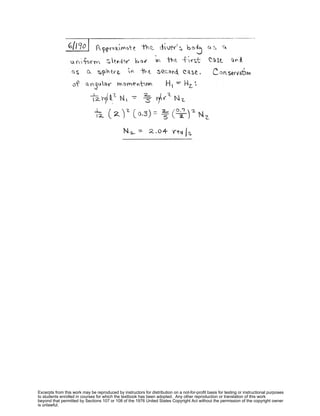 6/190 Approximate the diver's body as a
uniform slender bar in the first case and
as a sphere in the second case. Conservation
of angular momentum H₁ = H₂ :
1/12 ml² N₁ = 2/5 mr² N₂
1/12 (2)² (0.3) = 2/5 (0.7/2)² N₂
N₂ = 2.04 rev/s
Excerpts from this work may be reproduced by instructors for distribution on a not-for-profit basis for testing or instructional purposes
to students enrolled in courses for which the textbook has been adopted. Any other reproduction or translation of this work
beyond that permitted by Sections 107 or 108 of the 1976 United States Copyright Act without the permission of the copyright owner
is unlawful.